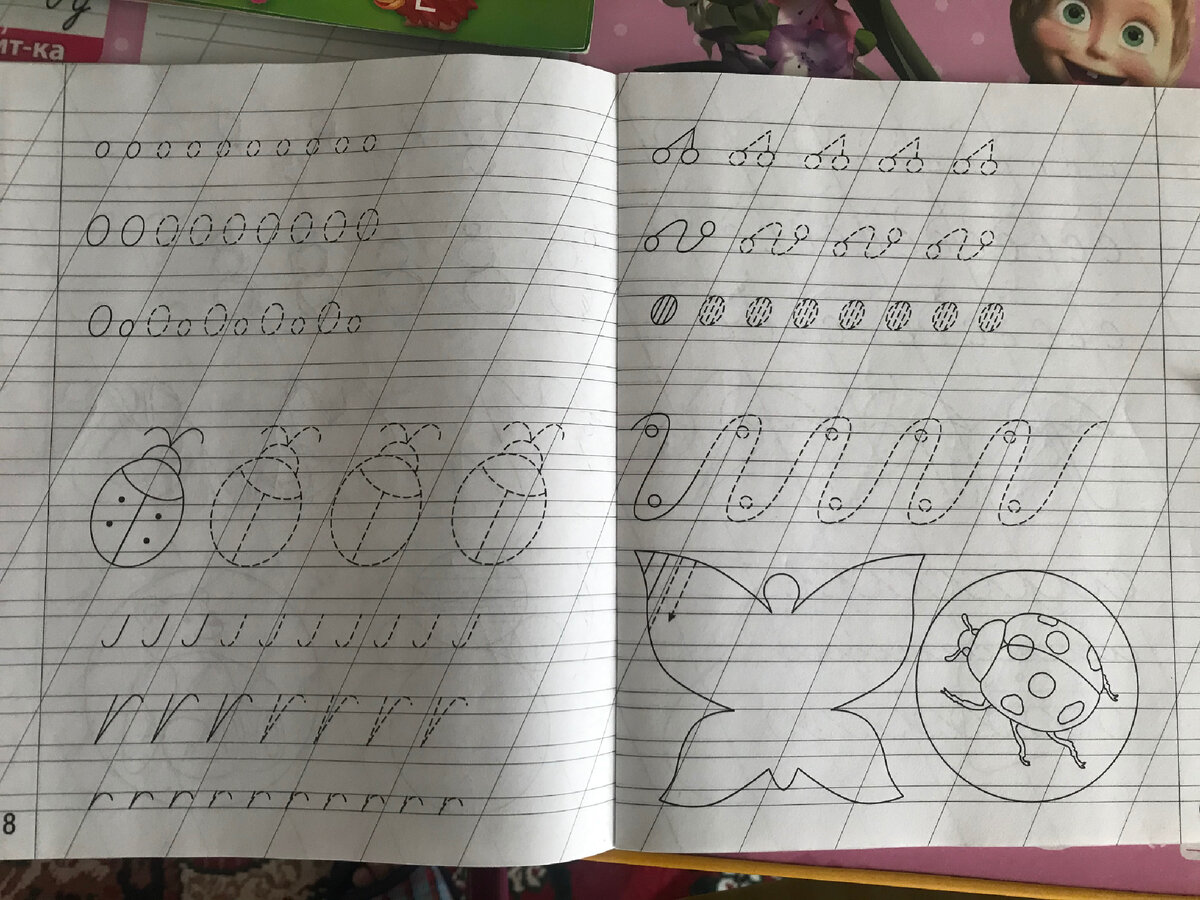 ит-ка
о о о о о о о о о о
О О О О О О О О О
О о О о О о О о О о
8